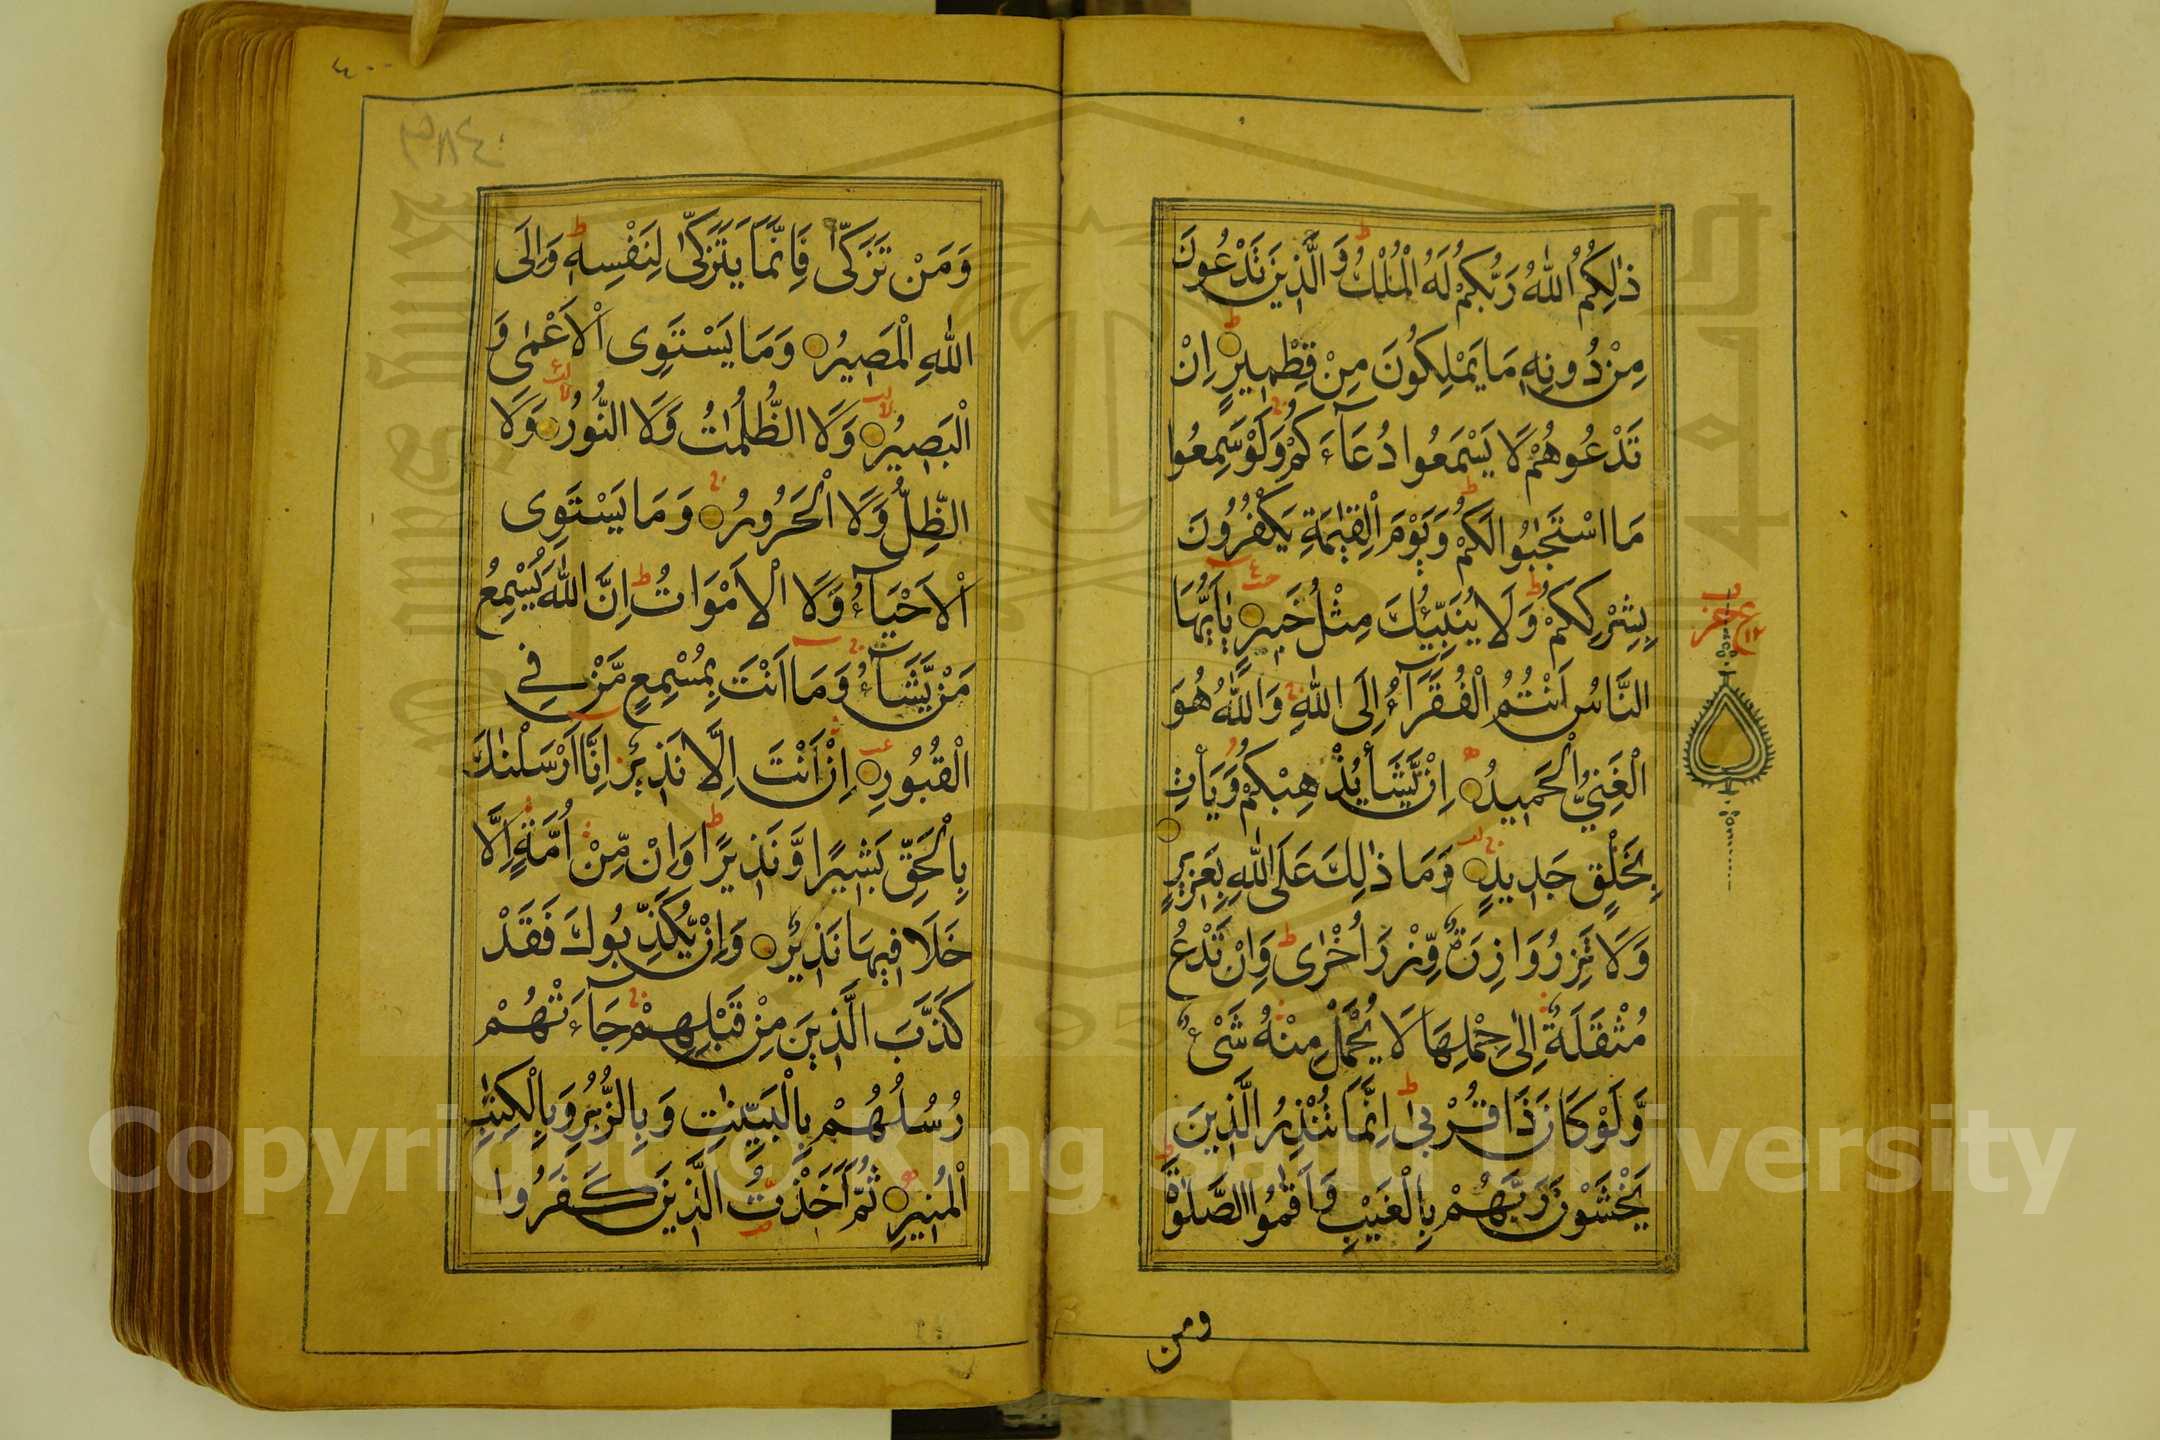 ذٰلِكُمُ اللّٰهُ رَبُّكُمْ لَهُ الْمُلْكُ وَالَّذِينَ تَدْعُونَ
مِنْ دُونِهٖ مَا يَمْلِكُونَ مِنْ قِطْمِيرٍ اِنْ
تَدْعُوهُمْ لَا يَسْمَعُوا دُعَآءَكُمْ وَلَوْ سَمِعُوا
مَا اسْتَجٰبُوا لَكُمْ وَيَوْمَ الْقِيٰمَةِ يَكْفُرُونَ
بِشِرْكِكُمْ وَلَا يُنَبِّئُكَ مِثْلُ خَبِيرٍ يٰاَيُّهَا
النَّاسُ اَنْتُمُ الْفُقَرَآءُ اِلَى اللّٰهِ وَاللّٰهُ هُوَ
الْغَنِيُّ الْحَمِيدُ اِنْ يَّشَأْ يُذْهِبْكُمْ وَيَأْتِ
بِخَلْقٍ جَدِيدٍ وَمَا ذٰلِكَ عَلَى اللّٰهِ بِعَزِيزٍ
وَلَا تَزِرُ وَازِرَةٌ وِّزْرَ اُخْرٰى وَاِنْ تَدْعُ
مُثْقَلَةٌ اِلٰى حِمْلِهَا لَا يُحْمَلْ مِنْهُ شَىْءٌ
وَّلَوْ كَانَ ذَا قُرْبٰى اِنَّمَا تُنْذِرُ الَّذِينَ
يَخْشَوْنَ رَبَّهُمْ بِالْغَيْبِ وَاَقَامُوا الصَّلٰوةَ
ومن
وَمَنْ تَزَكّٰى فَاِنَّمَا يَتَزَكّٰى لِنَفْسِهٖ وَاِلَى
اللّٰهِ الْمَصِيرُ وَمَا يَسْتَوِى الْاَعْمٰى وَ
الْبَصِيرُ وَلَا الظُّلُمٰتُ وَلَا النُّورُ وَلَا
الظِّلُّ وَلَا الْحَرُورُ وَمَا يَسْتَوِى
الْاَحْيَآءُ وَلَا الْاَمْوَاتُ اِنَّ اللّٰهَ يُسْمِعُ
مَنْ يَّشَآءُ وَمَا اَنْتَ بِمُسْمِعٍ مَّنْ فِي
الْقُبُورِ اِنْ اَنْتَ اِلَّا نَذِيرٌ اِنَّا اَرْسَلْنٰكَ
بِالْحَقِّ بَشِيرًا وَّنَذِيرًا وَاِنْ مِّنْ اُمَّةٍ اِلَّا
خَلَا فِيهَا نَذِيرٌ وَاِنْ يُّكَذِّبُوكَ فَقَدْ
كَذَّبَ الَّذِينَ مِنْ قَبْلِهِمْ جَآءَتْهُمْ
رُسُلُهُمْ بِالْبَيِّنٰتِ وَبِالزُّبُرِ وَبِالْكِتٰبِ
الْمُنِيرِ ثُمَّ اَخَذْتُ الَّذِينَ كَفَرُوا
Copyright © King Saud University